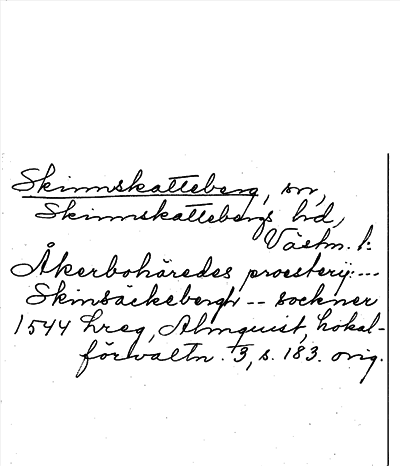 Skinnskatteberg, sn,
Skinnskattebergs hd,
Västm. l:
Åkerbohäredes proestery: ---
Skinsäckebergh -- sockner
1544 hreg, Almquist, Lokal-
förvaltn. 3, s. 183. orig.